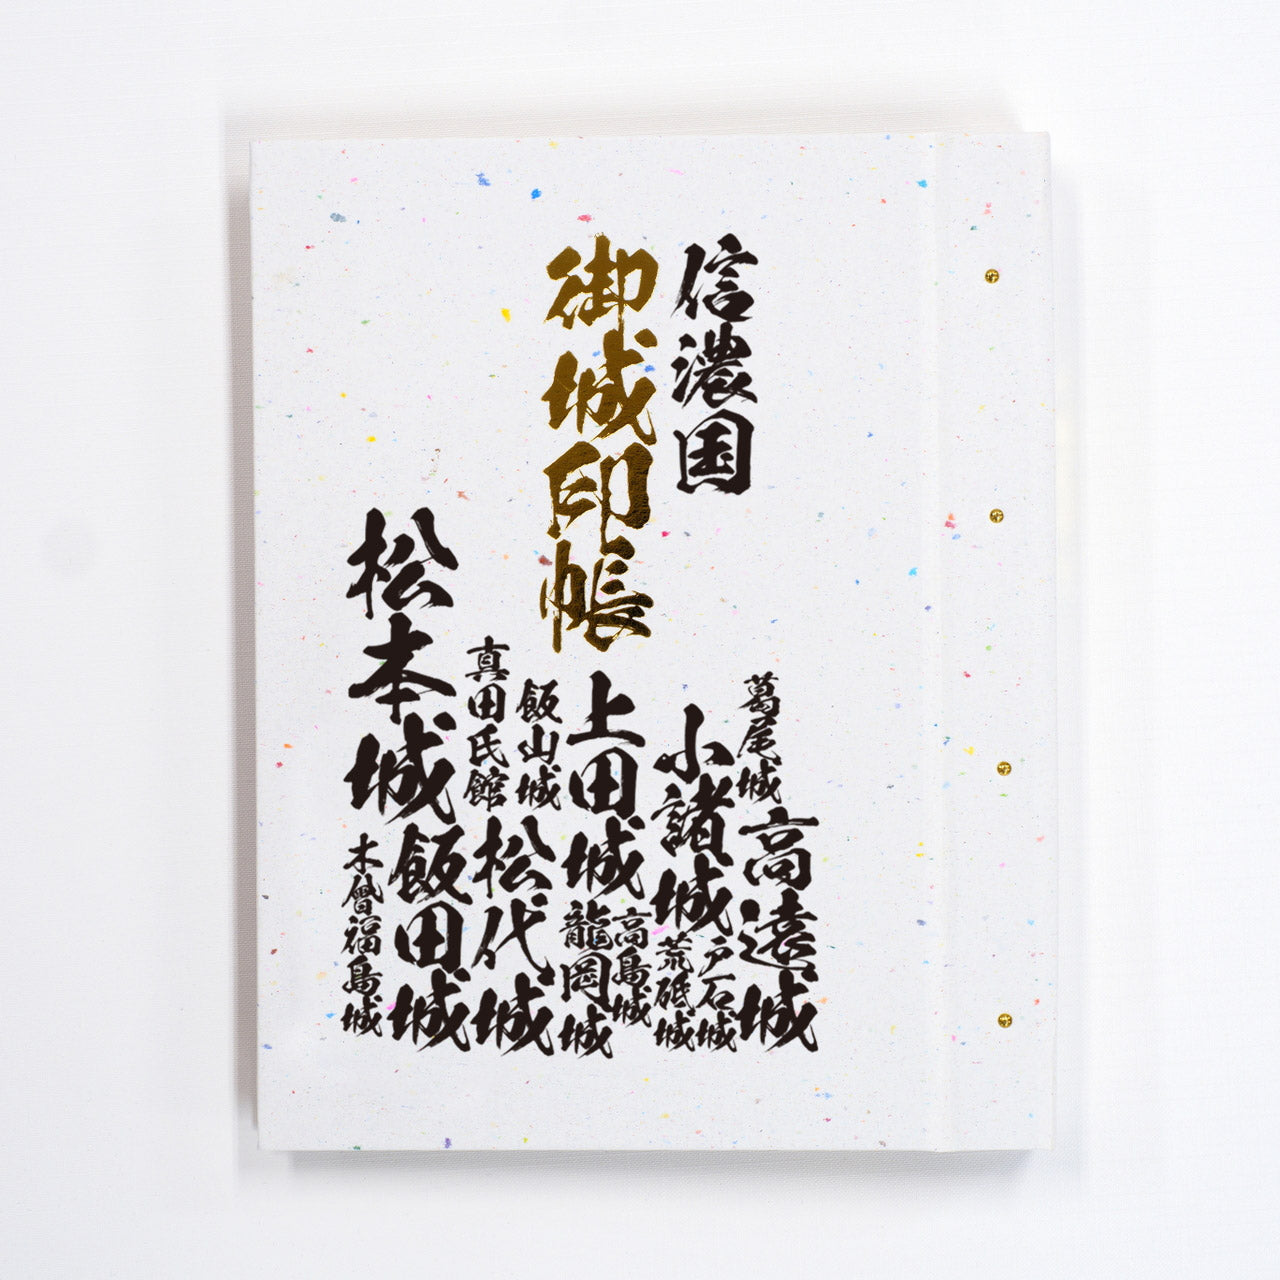 信濃国
御城印帳
葛尾城
高遠城
小諸城
戸石城
荒砥城
上田城
高島城
龍岡城
飯山城
真田氏館
松代城
松本城
飯田城
木曾福島城